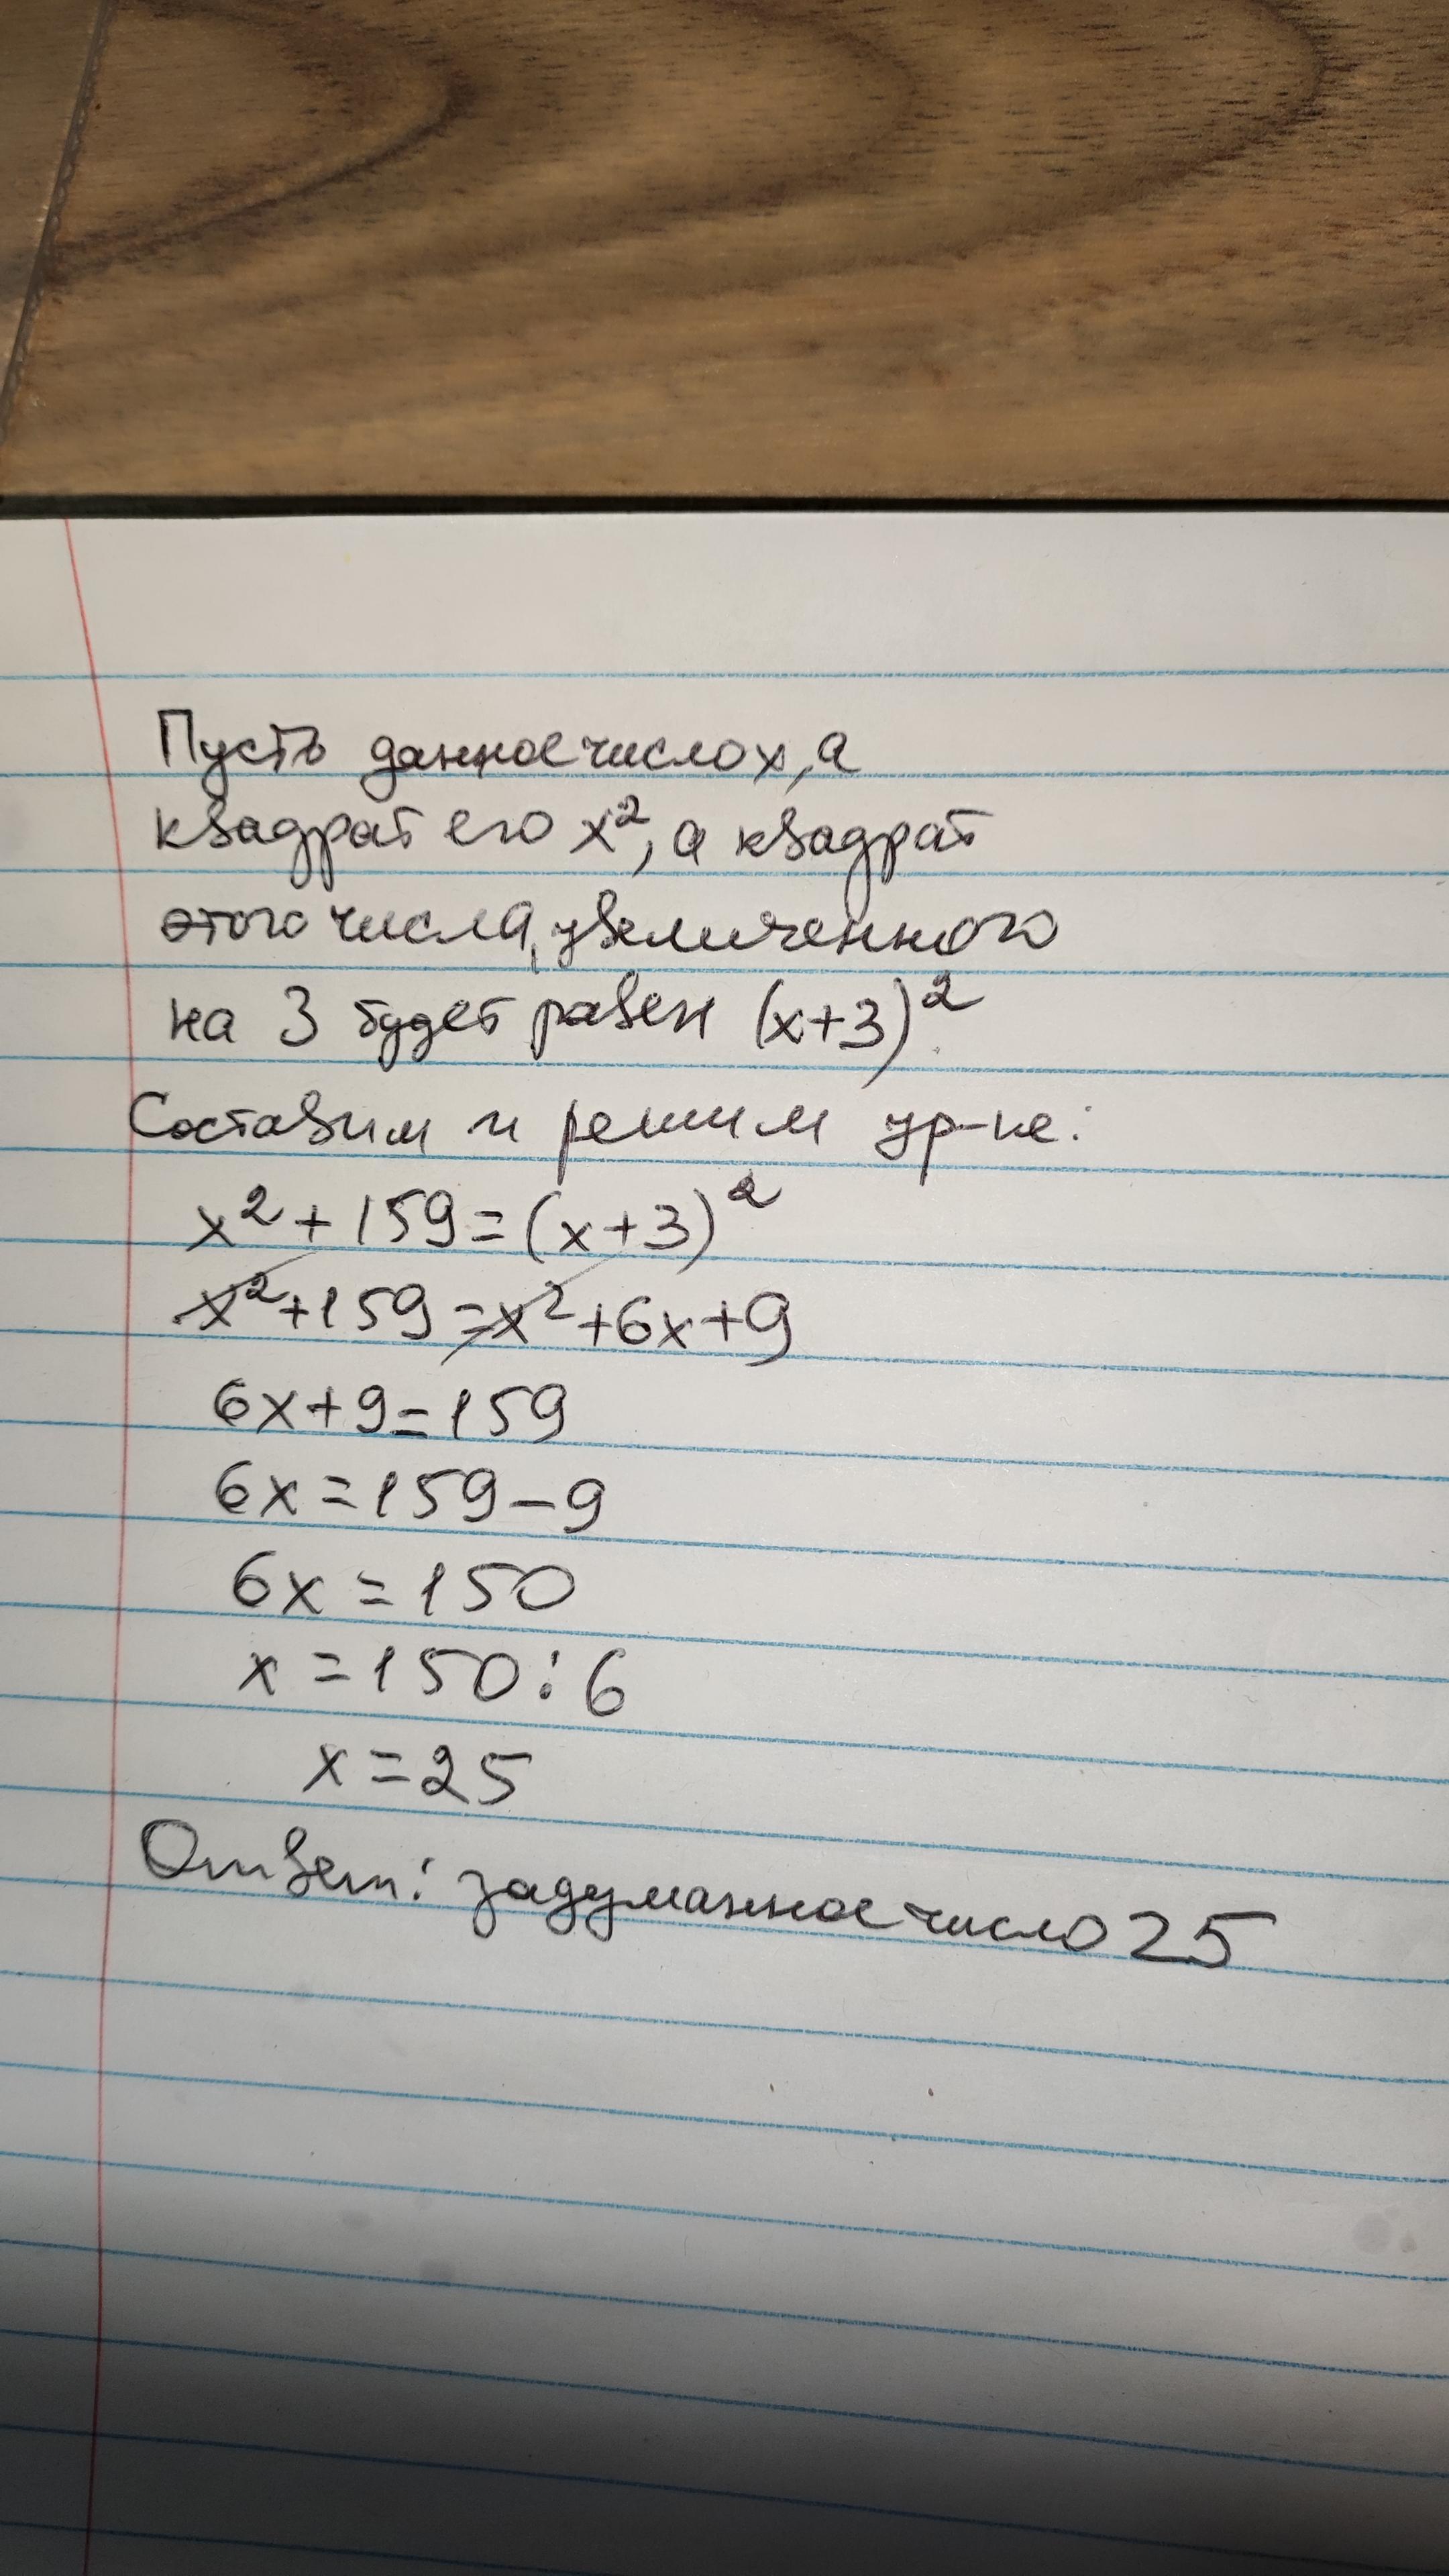 Пусть данное число x, а
квадрат его x², а квадрат
этого числа, увеличенного
на 3 будет равен (x+3)².
Составим и решим ур-не:
x²+159=(x+3)²
x²+159=x²+6x+9
6x+9=159
6x=159-9
6x=150
x=150:6
x=25
Ответ: задуманное число 25